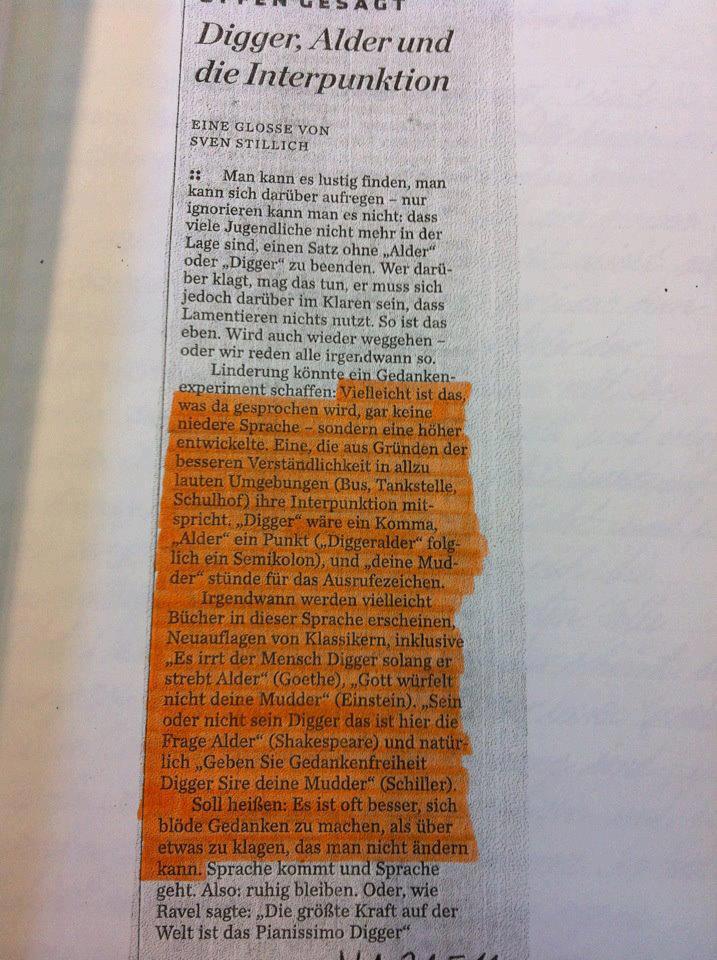 OFFEN GESAGT
Digger, Alder und
die Interpunktion
EINE GLOSSE VON
SVEN STILLICH
Man kann es lustig finden, man
kann sich darüber aufregen – nur
ignorieren kann man es nicht: dass
viele Jugendliche nicht mehr in der
Lage sind, einen Satz ohne „Alder“
oder „Digger“ zu beenden. Wer darü-
ber klagt, mag das tun, er muss sich
jedoch darüber im Klaren sein, dass
Lamentieren nichts nutzt. So ist das
eben. Wird auch wieder weggehen –
oder wir reden alle irgendwann so.
Linderung könnte ein Gedanken-
experiment schaffen: Vielleicht ist das,
was da gesprochen wird, gar keine
niedere Sprache – sondern eine höher
entwickelte. Eine, die aus Gründen der
besseren Verständlichkeit in allzu
lauten Umgebungen (Bus, Tankstelle,
Schulhof) ihre Interpunktion mit-
spricht. „Digger“ wäre ein Komma,
„Alder“ ein Punkt („Diggeralder“ folg-
lich ein Semikolon), und „deine Mud-
der“ stünde für das Ausrufezeichen.
Irgendwann werden vielleicht
Bücher in dieser Sprache erscheinen,
Neuauflagen von Klassikern, inklusive
„Es irrt der Mensch Digger solang er
strebt Alder“ (Goethe), „Gott würfelt
nicht deine Mudder“ (Einstein). „Sein
oder nicht sein Digger das ist hier die
Frage Alder“ (Shakespeare) und natür-
lich „Geben Sie Gedankenfreiheit
Digger Sire deine Mudder“ (Schiller).
Soll heißen: Es ist oft besser, sich
blöde Gedanken zu machen, als über
etwas zu klagen, das man nicht ändern
kann. Sprache kommt und Sprache
geht. Also: ruhig bleiben. Oder, wie
Ravel sagte: „Die größte Kraft auf der
Welt ist das Pianissimo Digger“